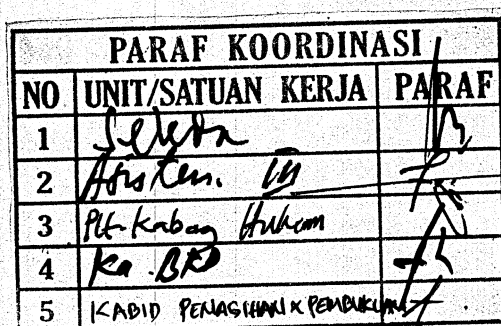 PARAF KOORDINASI
NO UNIT/SATUAN KERJA PARAF
1 Sekda
2 Asisten. III
3 Plt. Kabag Hukum
4 Ka. BKD
5 KABID PENAGIHAN & PEMBUKUAN